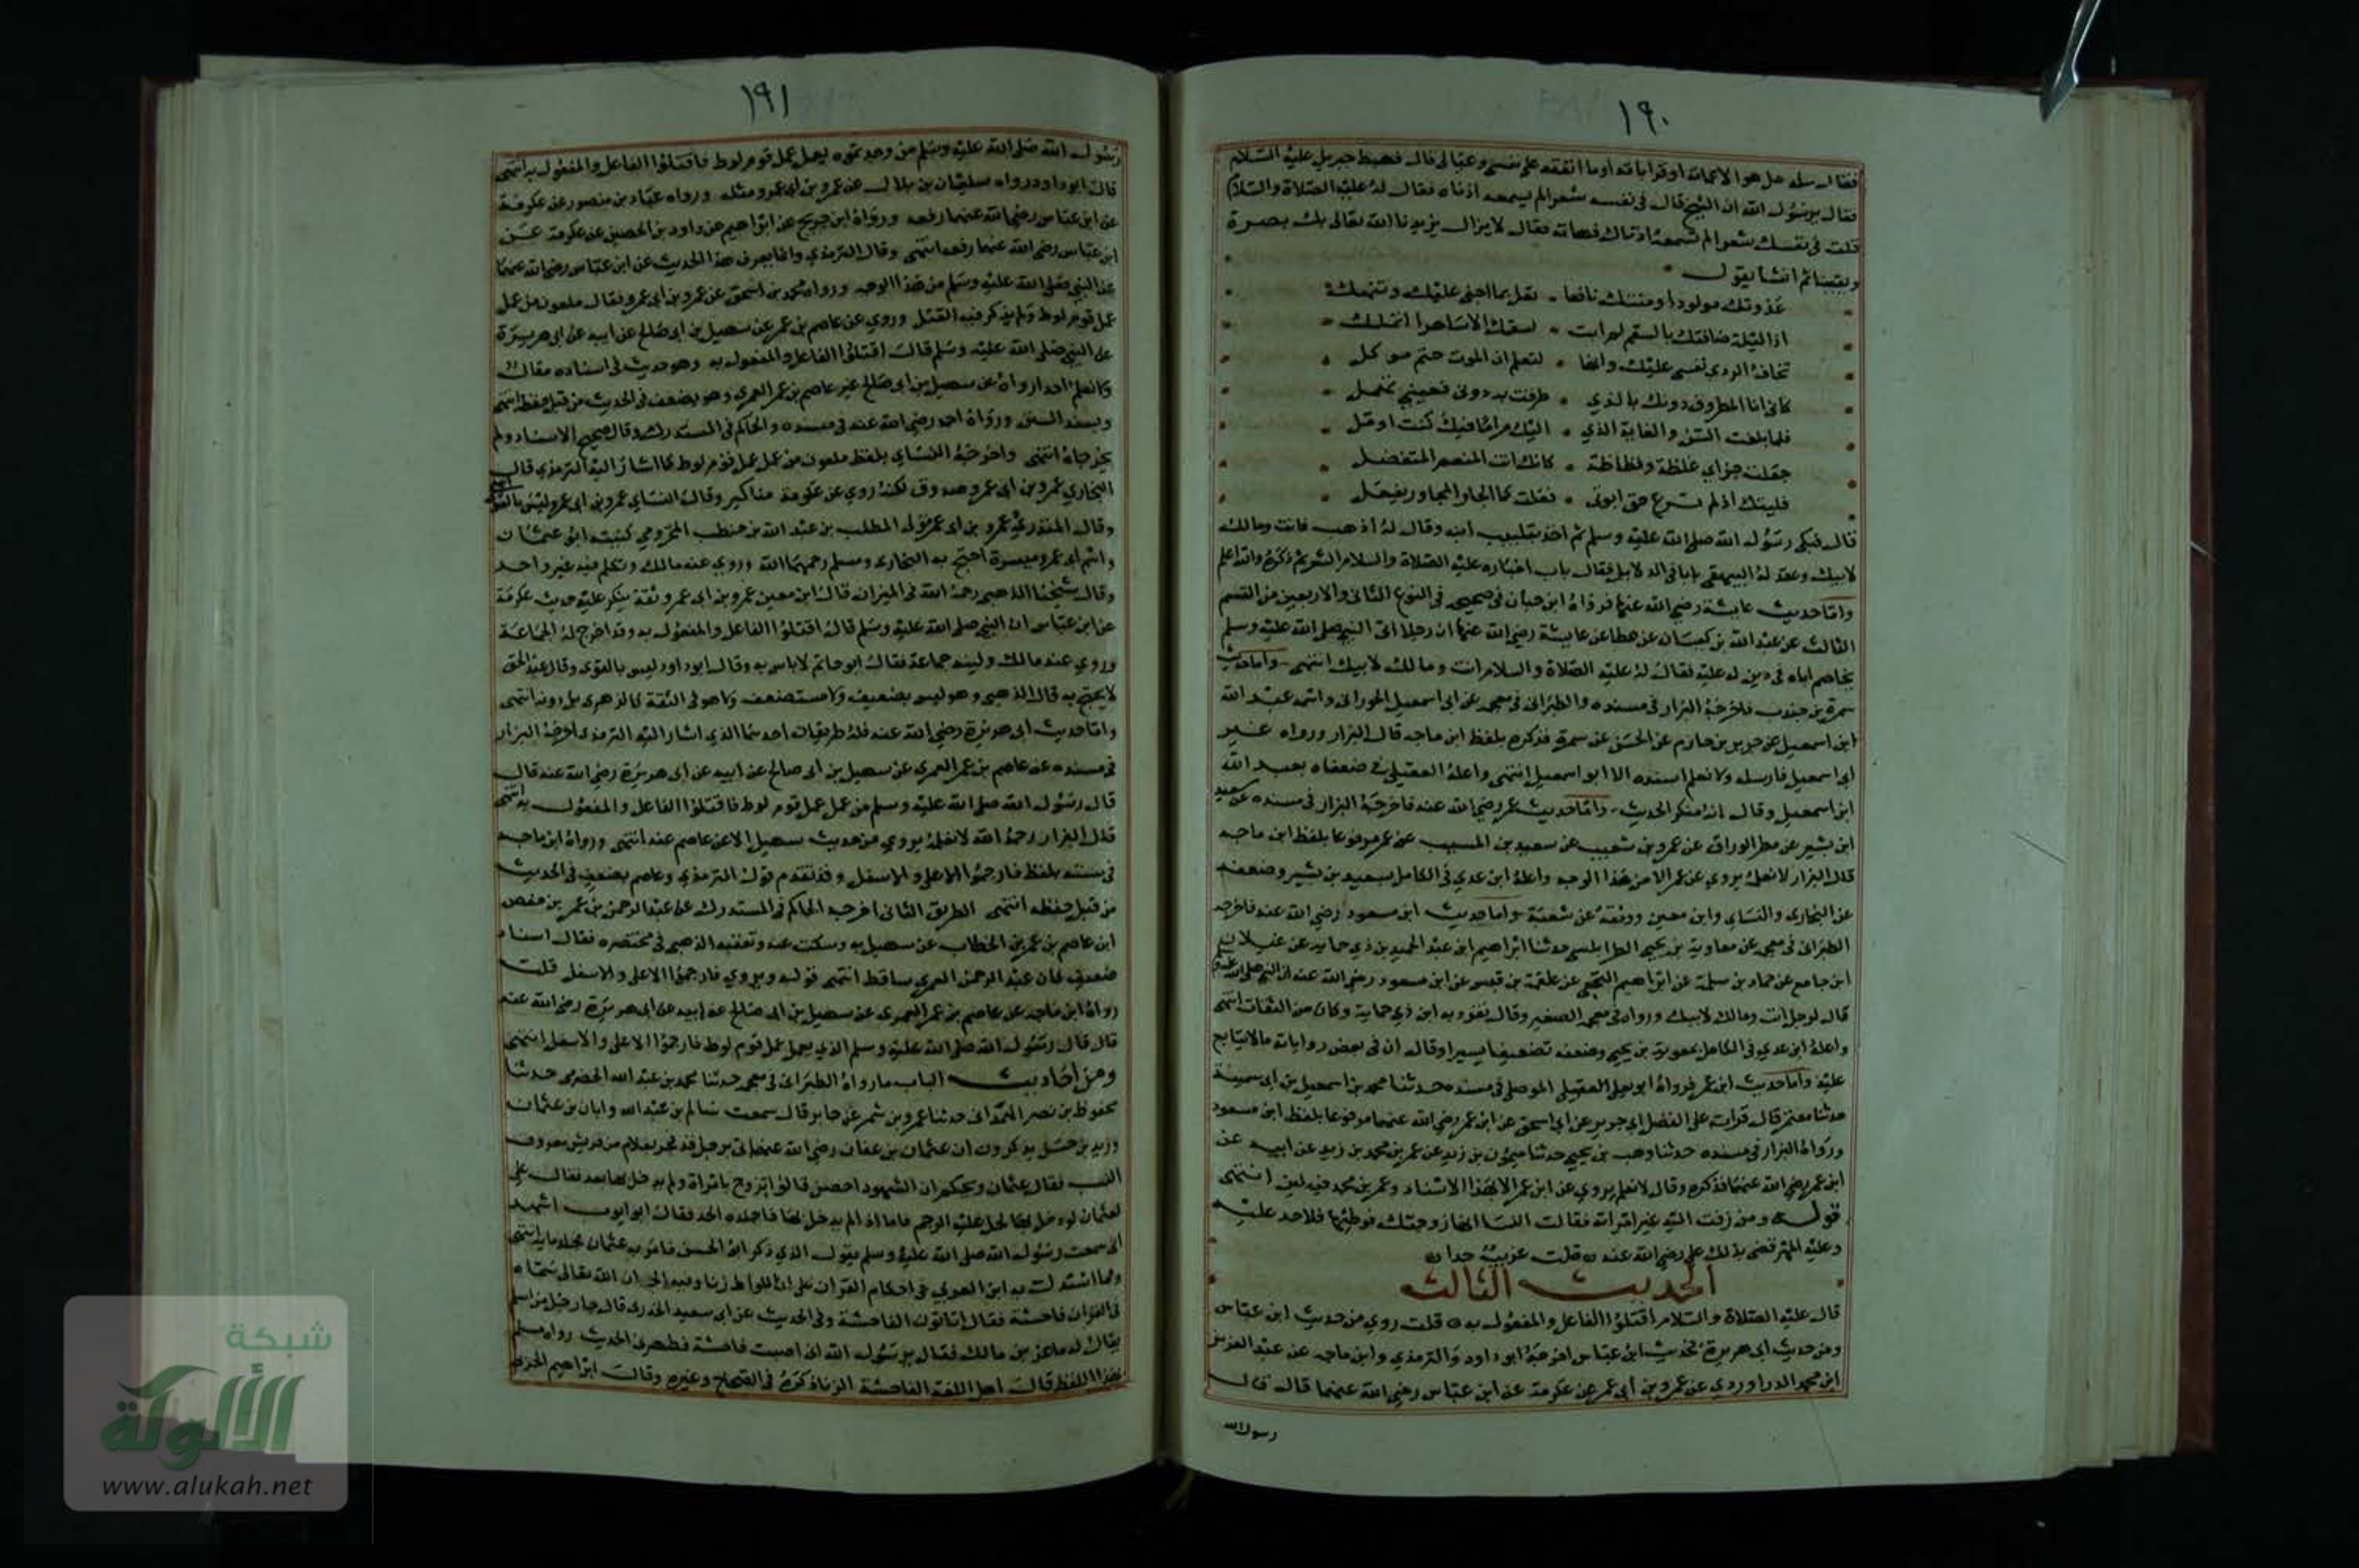 ١٩٠
فقال سله هل هو الا عماته او قراباته أو ما انفقه على نفسي وعيالى قال فهبط جبريل عليه السلام
فقال يرسول الله ان الشيخ قال فى نفسه شعرا لم يسمعه اذناه فقال له عليه الصلاة والسلام
قلت فى نفسك شعرا لم تسمعه اذناك فهاته فقال لا يزال يزيدنا الله تعالى بك بصيرة
ويقينا ثم انشا يقول
غذوتك مولودا ومنتك نافعا • تعل بما اجنى عليك وتنهل
اذا ليلة ضافتك بالسقم لم ابت • لسقمك الا ساهرا اتململ
تخاف الردى نفسى عليك وانها • لتعلم ان الموت حتم موكل
كانى انا المطروق دونك بالذي • طرقت به دونى فعينى تهمل
فلما بلغت السن والغاية الذي • اليك مراما فيك كنت اومل
جعلت جزاي غلظة وفظاظة • كانك انت المنعم المتفضل
فليتك اذ لم ترع حق ابوتى • فعلت كما الجار المجاور يفعل
قال فبكى رسول الله صلى الله عليه وسلم ثم اخذ بتلبيب ابنه وقال له اذهب فانت ومالك
لابيك وعقد له البيهقى بابا فى الدلايل فقال باب اخباره عليه الصلاة والسلام الشعر ثم ذكره والله اعلم
وأما حديث عايشة رضي الله عنها فرواه ابن حبان في صحيحه فى النوع الثانى والاربعين من القسم
الثالث عن عبد الله بن كيسان عن عطا عن عايشة رضي الله عنها ان رجلا اتى النبي صلى الله عليه وسلم
يخاصم اباه فى دين له عليه فقال له عليه الصلاة والسلام انت ومالك لابيك انتهى وأما حديث
سمرة بن جندب فاخرجه البزار فى مسنده والطبرانى فى معجمه عن ابى اسمعيل الجورانى واسمه عبد الله
ابن اسمعيل عن جرير بن حازم عن الحسن عن سمرة فذكره بلفظ ابن ماجه قال البزار ورواه غير
ابى اسمعيل فارسله ولا نعلم اسنده الا ابو اسمعيل انتهى واعله العقيلى فى ضعفاه بعبد الله
ابن اسمعيل وقال انه منكر الحديث وأما حديث عمر رضي الله عنه فاخرجه البزار فى مسنده عن سعيد
ابن بشير عن مطر الوراق عن عمرو بن شعيب عن سعيد بن المسيب عن عمر مرفوعا بلفظ ابن ماجه
قال البزار لا نعلمه يروي عن عمر الا من هذا الوجه واعله ابن عدي فى الكامل بسعيد بن بشير وضعفه
عن البخارى والنساى وابن معين ووثقه عن شعبة وأما حديث ابن مسعود رضي الله عنه فاخرجه
الطبرانى فى معجمه عن معاوية بن يحيى الطرابلسى حدثنا ابراهيم ابن عبد الحميد بن ذي حماية عن غيلان
ابن جامع عن حماد بن سلمة عن ابراهيم النخعي عن علقمة بن قيس عن ابن مسعود رضي الله عنه ان النبى صلى الله عليه وسلم
قال لرجل انت ومالك لابيك ورواه فى معجمه الصغير وقال تفرد به ابن ذي حماية وكان من الثقات انتهى
واعله ابن عدي فى الكامل بمعوية بن يحيى وضعفه تضعيفا يسيرا وقال ان فى بعض رواياته ما لا يتابع
عليه وأما حديث ابن عمر فرواه ابو يعلى العقيلى الموصلى فى مسنده حدثنا محمد بن اسمعيل بن ابى سمينة
حدثنا معتمر قال قرات على الفضل ابى جرير عن ابى اسحق عن ابن عمر رضي الله عنهما مرفوعا بلفظ ابن مسعود
ورواه البزار فى مسنده حدثنا وهب بن يحيى حدثنا ميمون بن زيد عن عمر بن محمد بن زيد عن ابيه عن
ابن عمر رضي الله عنهما فذكره وقال لا نعلم يروي عن ابن عمر الا بهذا الاسناد وعمر بن محمد فيه لين انتهى
قوله ومن زفت اليه غير امراته فقالت النسا انها زوجتك فوطئها فلا حد عليه
وعليه المهر قضى بذلك علي رضي الله عنه ٥ قلت غريب جدا ٥
الحديث الثالث
قال عليه الصلاة والسلام اقتلوا الفاعل والمفعول به ٥ قلت روي من حديث ابن عباس
ومن حديث ابى هريرة فحديث ابن عباس اخرجه ابو داود والترمذي وابن ماجه عن عبد العزيز
ابن محمد الدراوردي عن عمرو بن أبى عمر عن عكرمة عن ابن عباس رضي الله عنهما قال قال
رسول الله
١٩١
رسول الله صلى الله عليه وسلم من وجدتموه يعمل عمل قوم لوط فاقتلوا الفاعل والمفعول به انتهى
قال ابو داود رواه سليمان بن بلال عن عمرو بن أبى عمرو مثله ورواه عباد بن منصور عن عكرمة
عن ابن عباس رضي الله عنهما رفعه ورواه ابن جريج عن ابراهيم عن داود بن الحصين عن عكرمة عن
ابن عباس رضي الله عنهما رفعه انتهى وقال الترمذي وانما يعرف هذا الحديث عن ابن عباس رضي الله عنهما
عن النبي صلى الله عليه وسلم من هذا الوجه ورواه محمد بن اسحق عن عمرو بن ابى عمرو فقال ملعون من عمل
عمل قوم لوط ولم يذكر فيه القتل وروي عن عاصم بن عمر عن سهيل بن ابى صالح عن ابيه عن ابى هريرة
عن النبي صلى الله عليه وسلم قال اقتلوا الفاعل والمفعول به وهو حديث فى اسناده مقال
ولا نعلم احدا رواه عن سهيل بن ابى صالح غير عاصم بن عمر العمري وهو يضعف فى الحديث من قبل حفظه انتهى
ورواه احمد رضي الله عنه فى مسنده والحاكم فى المستدرك وقال صحيح الاسناد ولم
يخرجاه انتهى واخرجه النساي بلفظ ملعون من عمل عمل قوم لوط كما اشار اليه الترمذي قال
البخاري عمرو بن ابى عمرو صدوق لكنه روي عن عكرمة مناكير وقال النساي عمرو بن ابى عمرو ليس بالقوي
وقال المنذري عمرو بن ابى عمرو مولى المطلب بن عبد الله بن حنطب المخزومي كنيته ابو عثمان
واسم ابى عمرو ميسرة احتج به البخارى ومسلم رحمهما الله وروي عنه مالك وتكلم فيه غير واحد
وقال شيخنا الذهبى رحمه الله فى الميزان قال ابن معين عمرو بن ابى عمرو ثقة ينكر عليه حديث عكرمة
عن ابن عباس ان النبي صلى الله عليه وسلم قال اقتلوا الفاعل والمفعول به وقد اخرج له الجماعة
وروي عنه مالك ولينه جماعة فقال ابو حاتم لا باس به وقال ابو داود ليس بالقوى وقال عبد الحق
لا يحتج به قال الذهبى وهو ليس بضعيف ولا مستضعف ولا هو فى الثقة كالزهري بل دونه انتهى
وأما حديث ابى هريرة رضي الله عنه فله طريقان احدهما الذي اشار اليه الترمذي اخرجه البزار
فى مسنده عن عاصم بن عمر العمري عن سهيل بن ابى صالح عن ابيه عن ابى هريرة رضي الله عنه قال
قال رسول الله صلى الله عليه وسلم من عمل عمل قوم لوط فاقتلوا الفاعل والمفعول به انتهى
قال البزار رحمه الله لا نعلمه يروي من حديث سهيل الا عن عاصم عنه انتهى ورواه ابن ماجه
فى سننه بلفظ فارجموا الاعلى والاسفل وقد تقدم قول الترمذي وعاصم يضعف فى الحديث
من قبل حفظه انتهى الطريق الثانى اخرجه الحاكم فى المستدرك عن عبد الرحمن بن عمر بن حفص
ابن عاصم بن عمر بن الخطاب عن سهيل به وسكت عنه وتعقبه الذهبى فى مختصره فقال اسناد
ضعيف فان عبد الرحمن العمري ساقط انتهى قوله ويروي فارجموا الاعلى والاسفل قلت
رواه ابن ماجه عن عاصم بن عمر العمرى عن سهيل بن ابى صالح عن ابيه عن ابى هريرة رضي الله عنه
قال قال رسول الله صلى الله عليه وسلم الذي يعمل عمل قوم لوط فارجموا الاعلى والاسفل انتهى
ومن أحاديث الباب ما رواه الطبرانى فى معجمه حدثنا محمد بن عبد الله الحضرمى حدثنا
محفوظ بن نصر الهمدانى حدثنا عمرو بن شمر عن جابر قال سمعت سالم بن عبد الله وابان بن عثمان
وزيد بن حسن يذكرون ان عثمان بن عفان رضي الله عنه اتى برجل قد فجر بغلام من قريش معروف
النسب فقال عثمان ويحكم اين الشهود احصن قالوا تزوج بامراة ولم يدخل بها بعد فقال علي
لعثمان لو دخل بها لحل عليه الرجم فاما اذ لم يدخل بها فاجلده الحد فقال ابو ايوب اشهد
انى سمعت رسول الله صلى الله عليه وسلم يقول الذي ذكر ابو الحسن فامر به عثمان فجلد ماية انتهى
ومما استدل به ابن العربي فى احكام القران على ان اللواط زنا وفيه الحد ان الله تعالى سماه
فى القران فاحشة فقال اتاتون الفاحشة وفى الحديث عن ابى سعيد الخدرى قال جا رجل من اسلم
يقال له ماعز بن مالك فقال يرسول الله انى اصبت فاحشة فطهرنى الحديث رواه مسلم
بهذا اللفظ قال اهل اللغة الفاحشة الزنا ذكره فى الصحاح وغيره وقال ابراهيم الحربى
شبكة
الألوكة
www.alukah.net